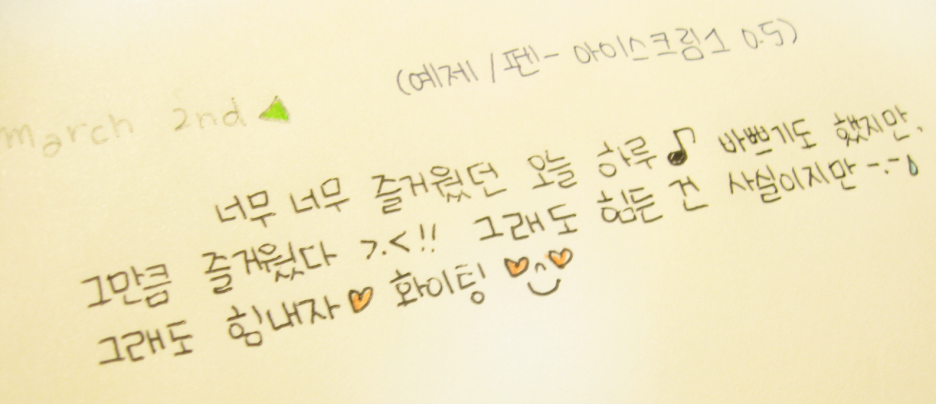 (예제/펜- 아이스크림소 0.5)
march 2nd
너무 너무 즐거웠던 오늘 하루♪ 바쁘기도 했지만,
그만큼 즐거웠다 >.<!! 그래도 힘든 건 사실이지만 -.-
그래도 힘내자♥ 화이팅 ♥^♥